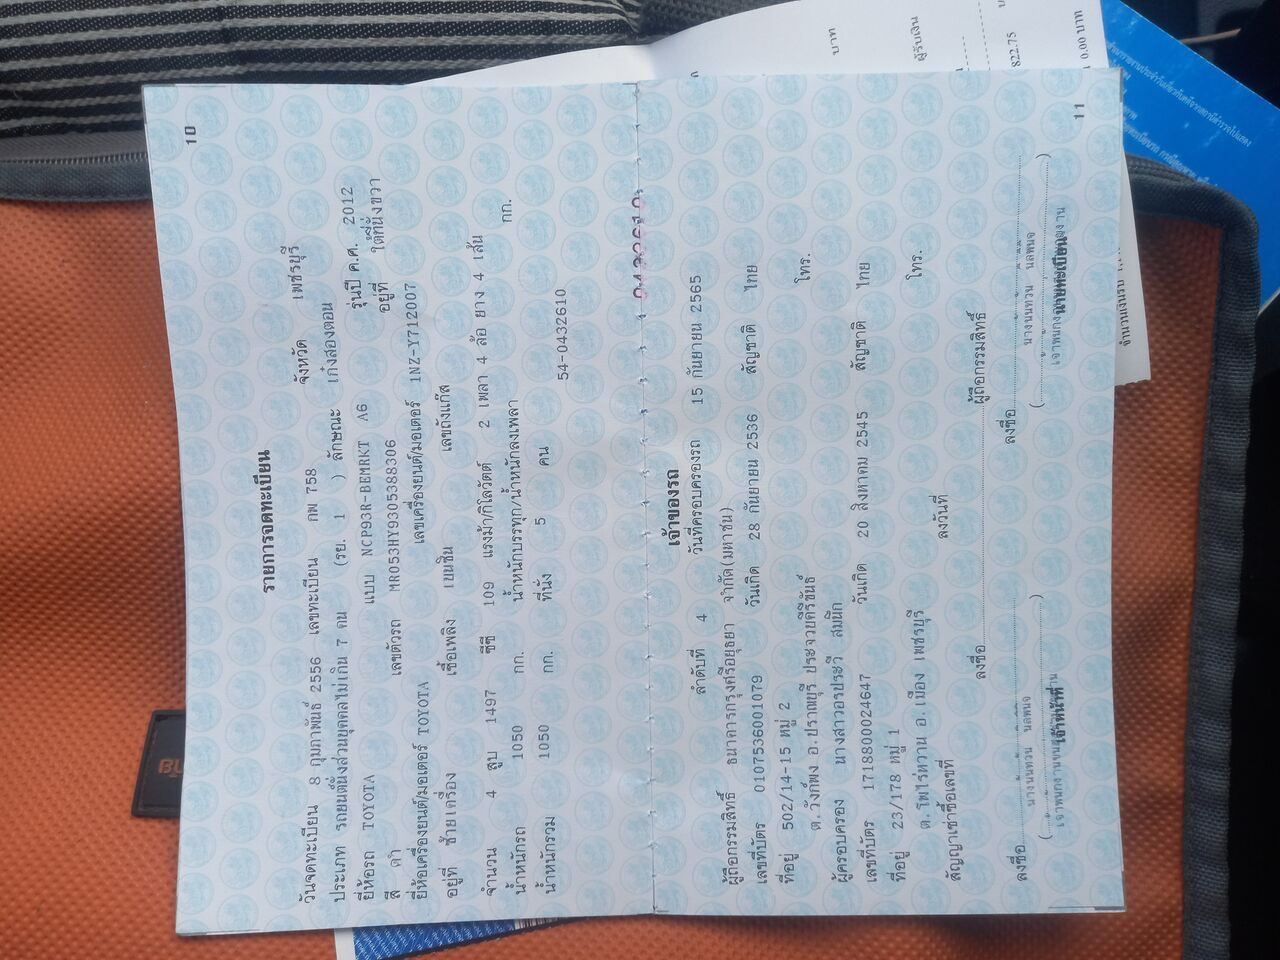 10
รายการจดทะเบียน
วันจดทะเบียน 8 กุมภาพันธ์ 2556 เลขทะเบียน กพ 758 จังหวัด เพชรบุรี
ประเภท รถยนต์นั่งส่วนบุคคลไม่เกิน 7 คน (รย. 1 ) ลักษณะ เก๋งสองตอน
ยี่ห้อรถ TOYOTA แบบ NCP93R-BEMRKT A6 รุ่นปี ค.ศ. 2012
สี ดำ เลขตัวรถ MR053HY9305388306 อยู่ที่ ใต้ที่นั่งขวา
ยี่ห้อเครื่องยนต์/มอเตอร์ TOYOTA เลขเครื่องยนต์/มอเตอร์ 1NZ-Y712007
อยู่ที่ ซ้ายเครื่อง เชื้อเพลิง เบนซิน เลขถังแก๊ส
จำนวน 4 สูบ 1497 ซีซี 109 แรงม้า/กิโลวัตต์ 2 เพลา 4 ล้อ ยาง 4 เส้น
น้ำหนักรถ 1050 กก. น้ำหนักบรรทุก/น้ำหนักลงเพลา กก.
น้ำหนักรวม 1050 กก. ที่นั่ง 5 คน
54-0432610
เจ้าของรถ
ลำดับที่ 4 วันที่ครอบครองรถ 15 กันยายน 2565
ผู้ถือกรรมสิทธิ์ ธนาคารกรุงศรีอยุธยา จำกัด(มหาชน)
เลขที่บัตร 0107536001079 วันเกิด 28 กันยายน 2536 สัญชาติ ไทย
ที่อยู่ 502/14-15 หมู่ 2 โทร.
ต.วังก์พง อ.ปราณบุรี ประจวบคีรีขันธ์
ผู้ครอบครอง นางสาวอรประวี สมนึก
เลขที่บัตร 1718800024647 วันเกิด 20 สิงหาคม 2545 สัญชาติ ไทย
ที่อยู่ 23/178 หมู่ 1 โทร.
ต.โพไร่หวาน อ.เมือง เพชรบุรี
สัญญาเช่าซื้อเลขที่ ลงวันที่
ลงชื่อ ผู้ถือกรรมสิทธิ์
ลงชื่อ ลงชื่อ
เจ้าหน้าที่ นายทะเบียน
11
บาท
ผู้รับเงิน
822.75
0.00 บาท